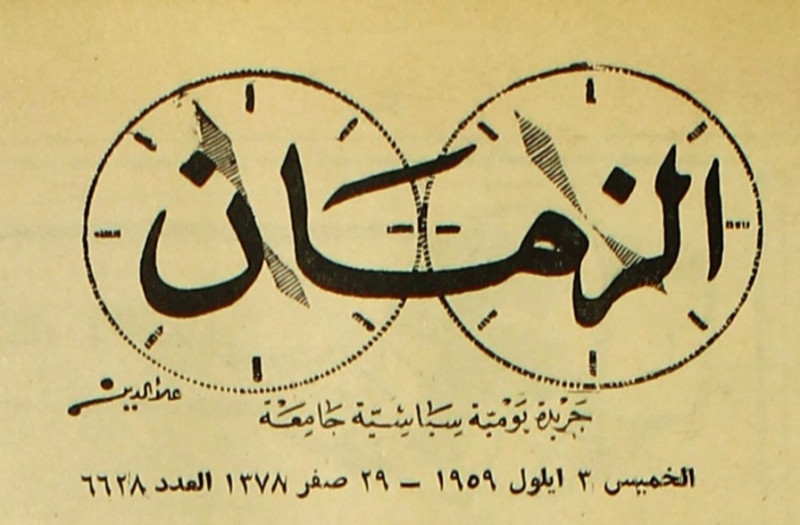 الزمان
علاء الدين
جَريدة يَوميّة سِيَاسِيّة جَامِعَة
الخميس ٣ ايلول ١٩٥٩ – ٢٩ صفر ١٣٧٨ العدد ٦٦٢٨